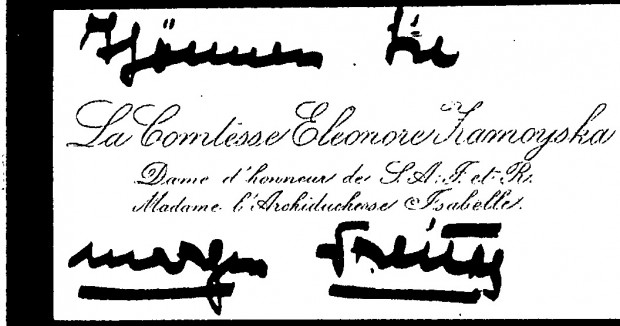 Können Sie
La Comtesse Eleonore Zamoyska
Dame d'honneur de S. A. I. et R.
Madame l'Archiduchesse Isabelle.
morgen Freitag